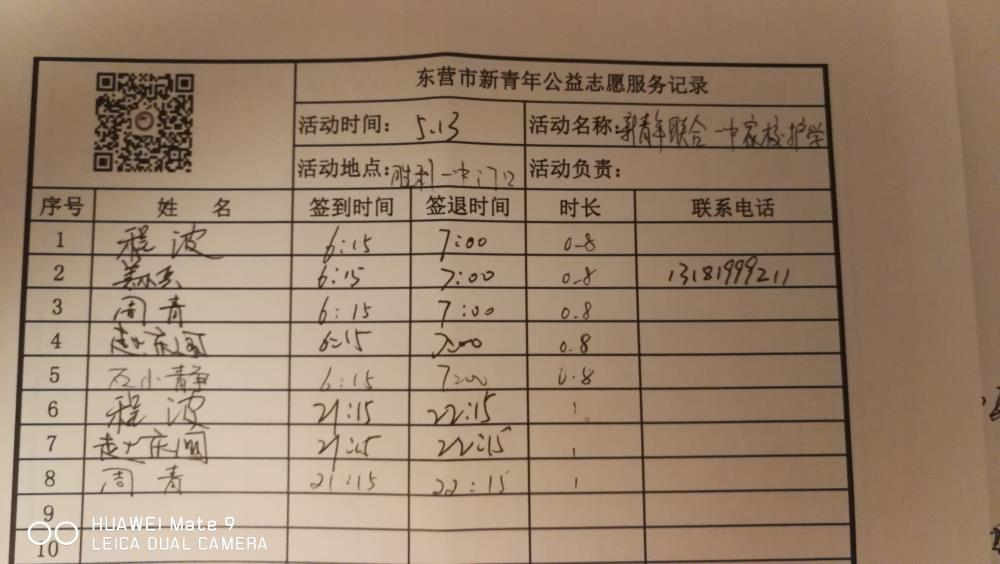 东营市新青年公益志愿服务记录
活动时间： 5.13 活动名称：新青年联合一中家校护学
活动地点：胜利一中门口 活动负责：
序号 姓 名 签到时间 签退时间 时长 联系电话
1 程波 6:15 7:00 0.8
2 6:15 7:00 0.8 13181999211
3 周青 6:15 7:00 0.8
4 赵庆国 6:15 7:00 0.8
5 石小静 6:15 7:00 0.8
6 程波 21:15 22:15 1
7 赵庆国 21:15 22:15 1
8 周青 21:15 22:15 1
9
10
HUAWEI Mate 9
LEICA DUAL CAMERA